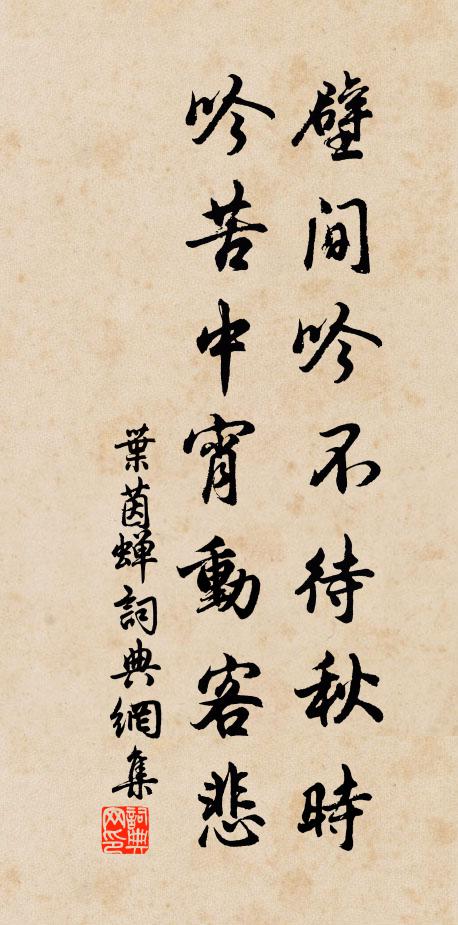 壁間吟不待秋時
吟苦中宵動客悲
葉茵蟬詞典網集
詞典网印